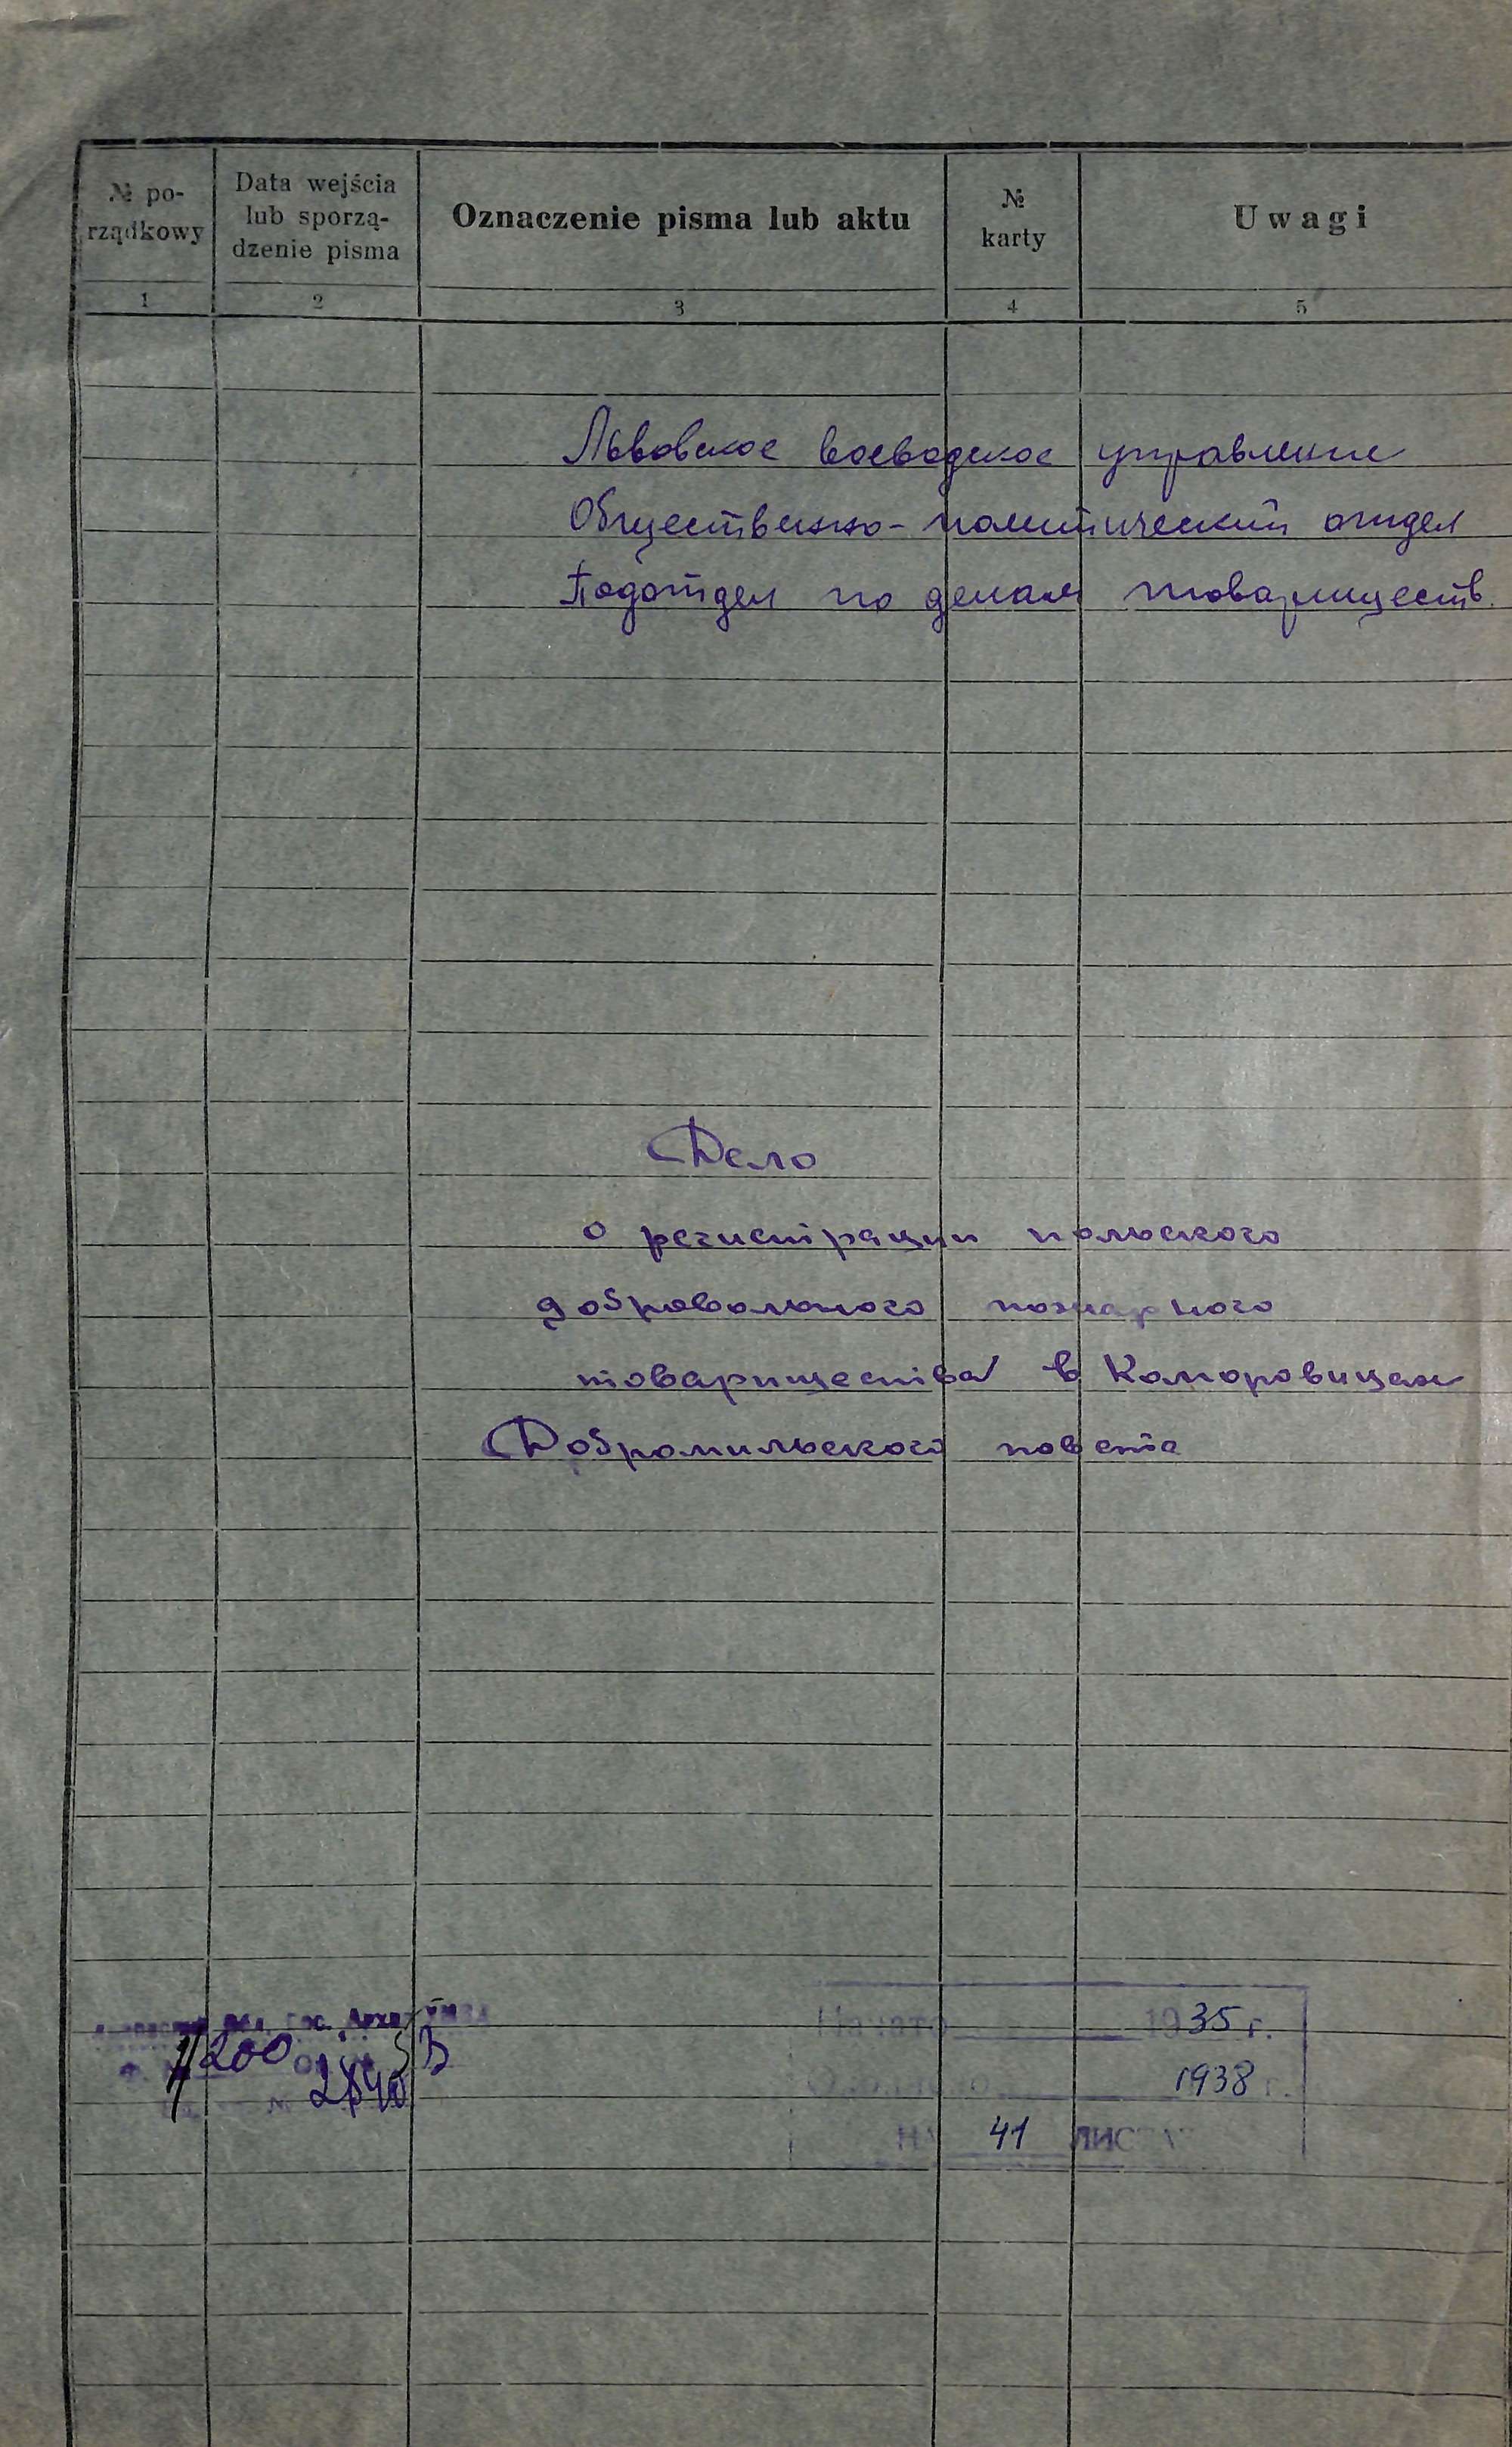 № po-
rządkowy
Data wejścia
lub sporzą-
dzenie pisma
Oznaczenie pisma lub aktu
№
karty
Uwagi
1 2 3 4 5
Львовское воеводское управление
Общественно-политический отдел
Подотдел по делам товариществ.
Дело
о регистрации польского
добровольного пожарного
товарищества в Коморовицах
Добромильского повета
гос. Архив
1935 г.
200
1938 г.
на 41 листах